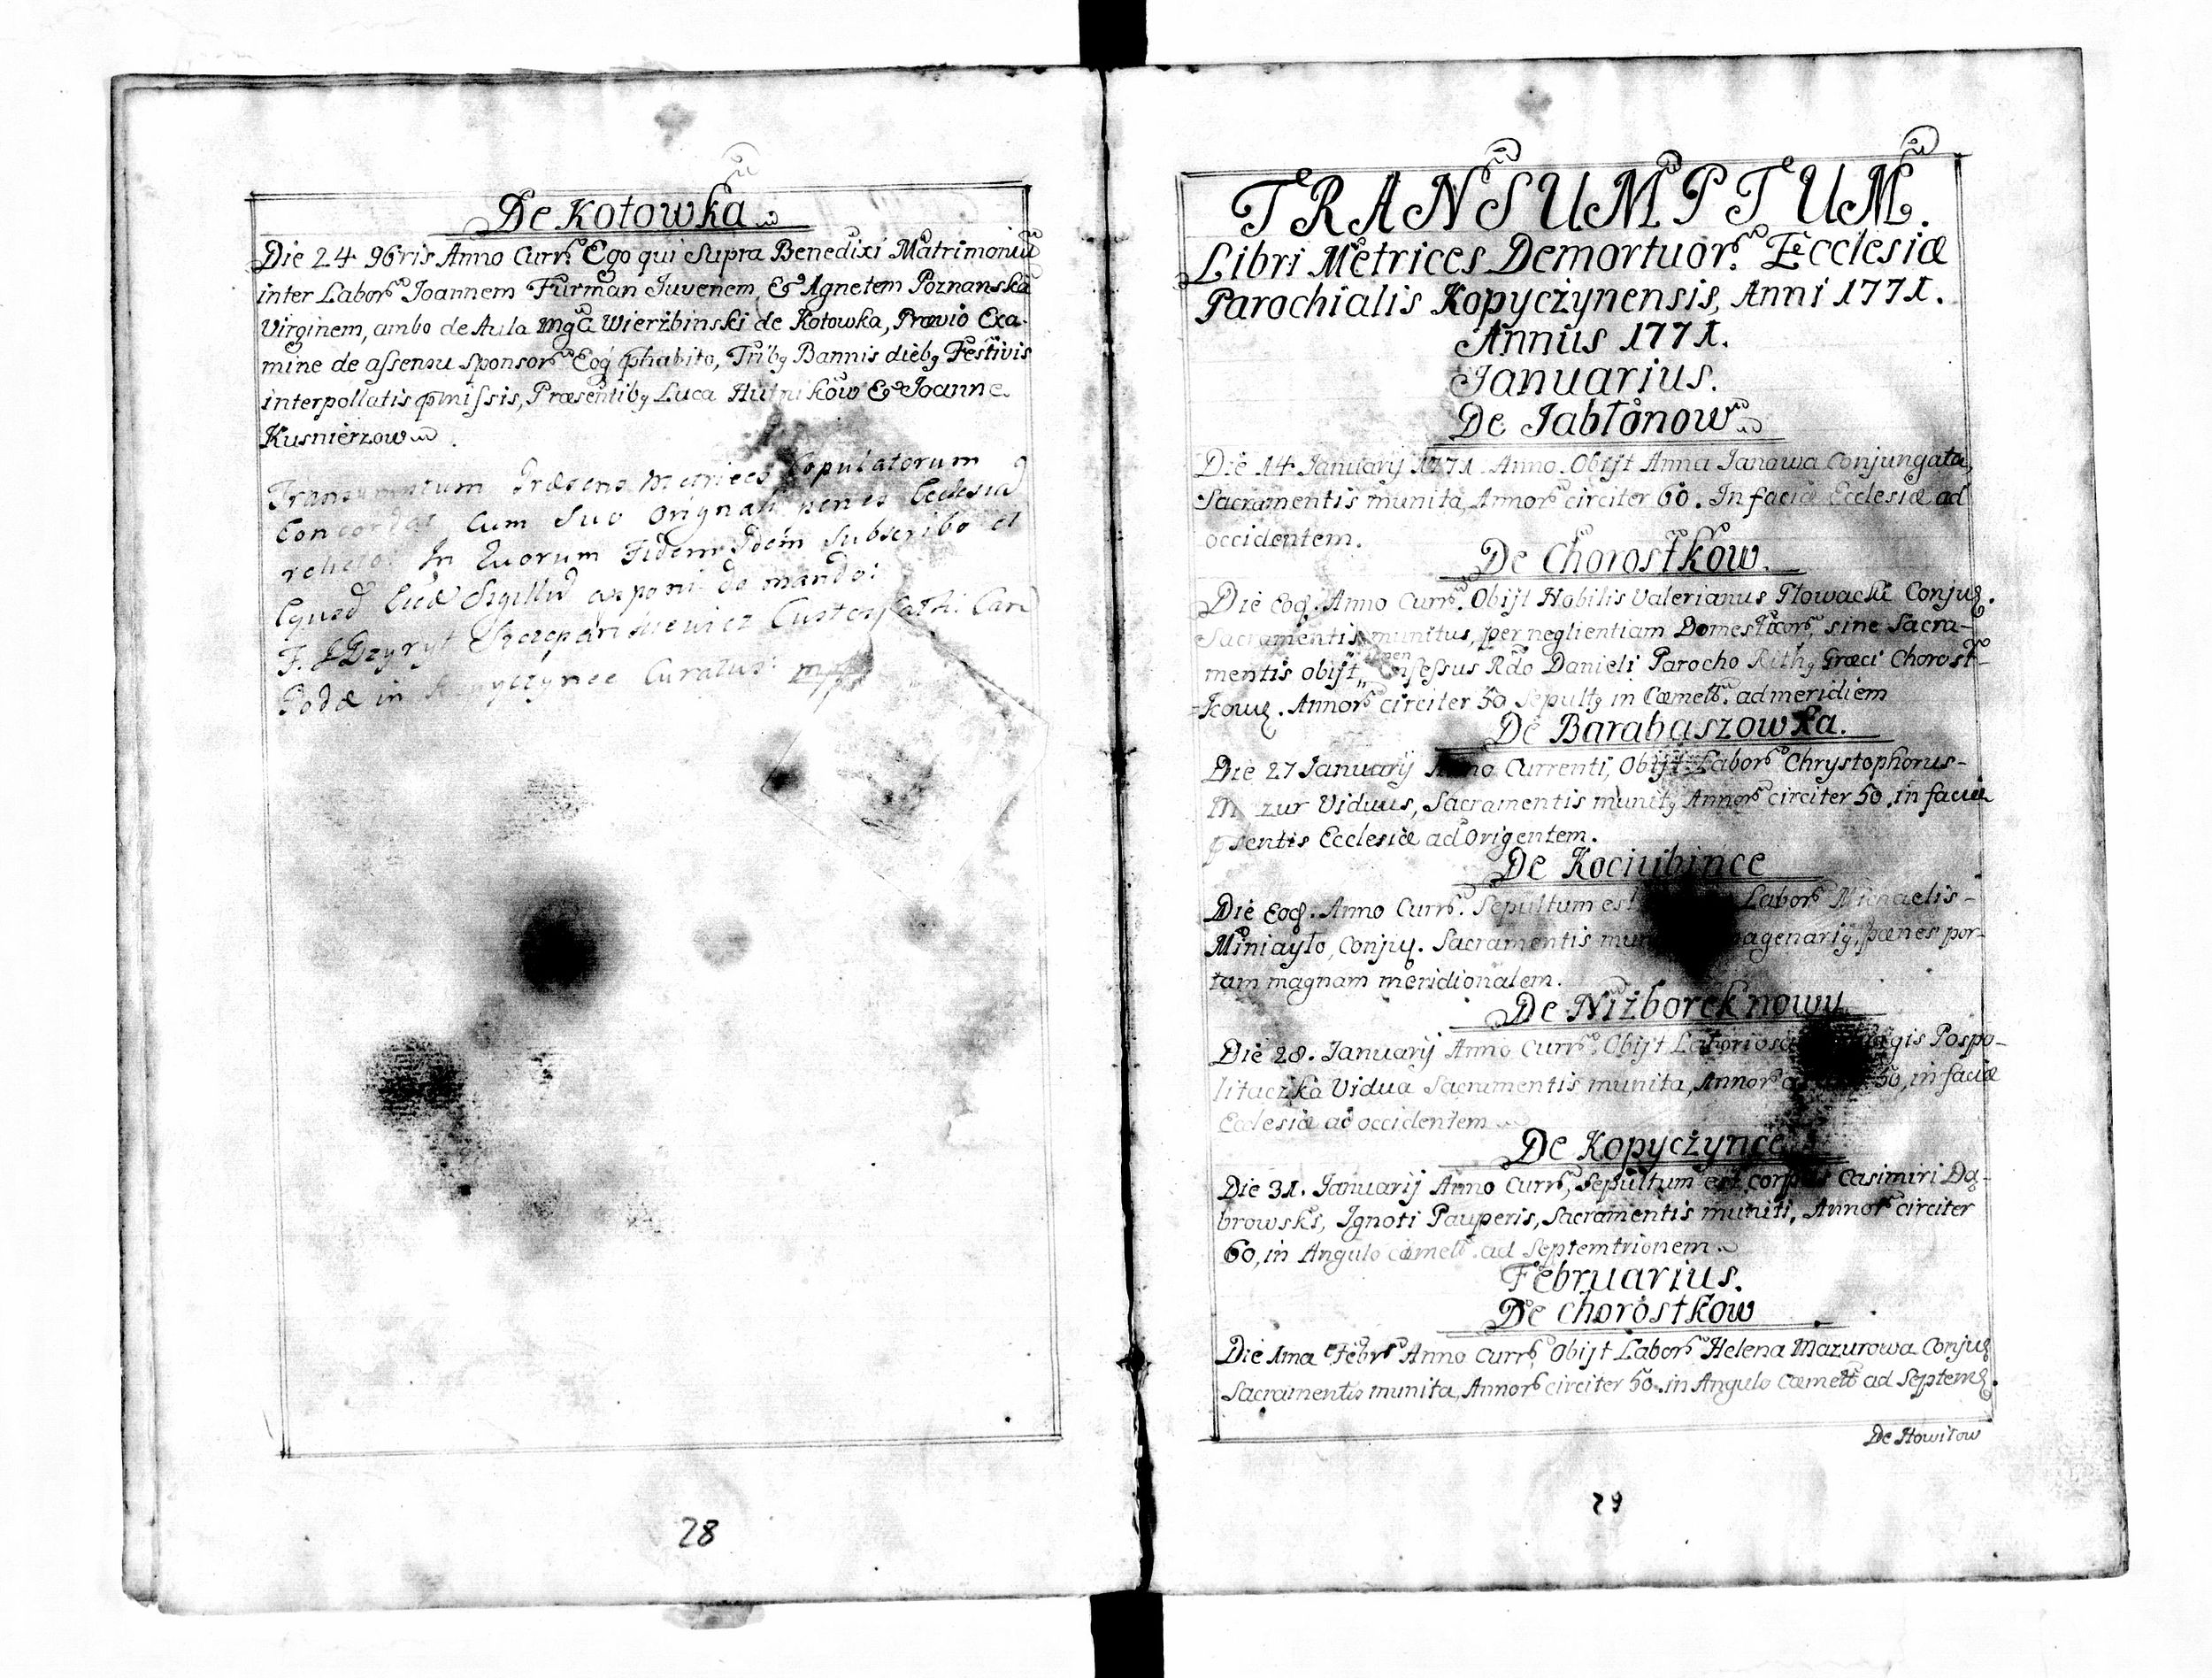 De Kotowka
Die 24 96ris Anno Curr. Ego qui Supra Benedixi Matrimoniu
inter Labor. Joannem Furman Juvenem, & Agnetem Poznanska
Virginem, ambo de Aula Mgci Wierżbinski de Kotowka, Prævio Exa-
mine de assensu sponsor. Eoq phabito, Tribq Bannis diebq Festivis
interpollatis pmissis, Præsentibq Luca Hutnikow & Joanne
Kusnierzow.
Transumptum Præsens Metrices Copulatorum
Concordat cum suo Orignali penes Ecclesia
relicto. In quorum Fidem Idem subscribo et
Sigillu apponi do mando:
F. Szczepankiewicz Custos Cath: Cam
Podæ in Kopyczynce Curatus: mp
28
TRANSUMPTUM.
Libri Metrices Demortuor. Ecclesiæ
Parochialis Kopycżynensis, Anni 1771.
Annus 1771.
Januarius.
De Jabłonow
Die 14 Januarij 1771 Anno. Obijt Anna Janowa Conjungata,
Sacramentis munita, Annor. circiter 60. In faciæ Ecclesiæ ad
occidentem.
De Chorostkow.
Die Eoq. Anno Curr. Obijt Nobilis Valerianus Głowacki Conjug.
Sacramentis munitus, per neglientiam Domesticor. sine Sacra-
mentis obijt, Rdo Danieli Parocho Rithq Græci Chorost-
=kow. Annor. circiter 50 Sepultq in Cæmett. ad meridiem
De Barabaszowka.
Die 27 Januarij Anno Currenti, Obijt Labor. Chrystophorus-
zur Viduus, Sacramentis munitq Annor. circiter 50. in faciæ
psentis Ecclesiæ ad Origentem.
De Kociubince
Die Eoq. Anno Curr. Sepultum est Labor. Michaelis-
Miniayło, Conjug. Sacramentis mun agenarij, pænes por-
tam magnam meridionalem.
De Niżborek nowy
Die 28. Januarij Anno Curr. Obijt Laboriosa gis Pospo-
litaczka Vidua Sacramentis munita, Annor. 50, in faciæ
Ecclesiæ ad occidentem
De Kopycżynce
Die 31. Januarij Anno Curr, Sepultum est corpus Casimiri Dą-
browski, Ignoti Pauperis, Sacramentis muniti, Annor. circiter
60, in Angulo cæmett. ad Septemtrionem.
Februarius.
De Chorostkow
Die 1ma Febr. Anno Curr. Obijt Labor. Helena Mazurowa Conjug
Sacramentis munita, Annor. circiter 50. in Angulo Cæmett. ad Septem.
De Howiłow
29